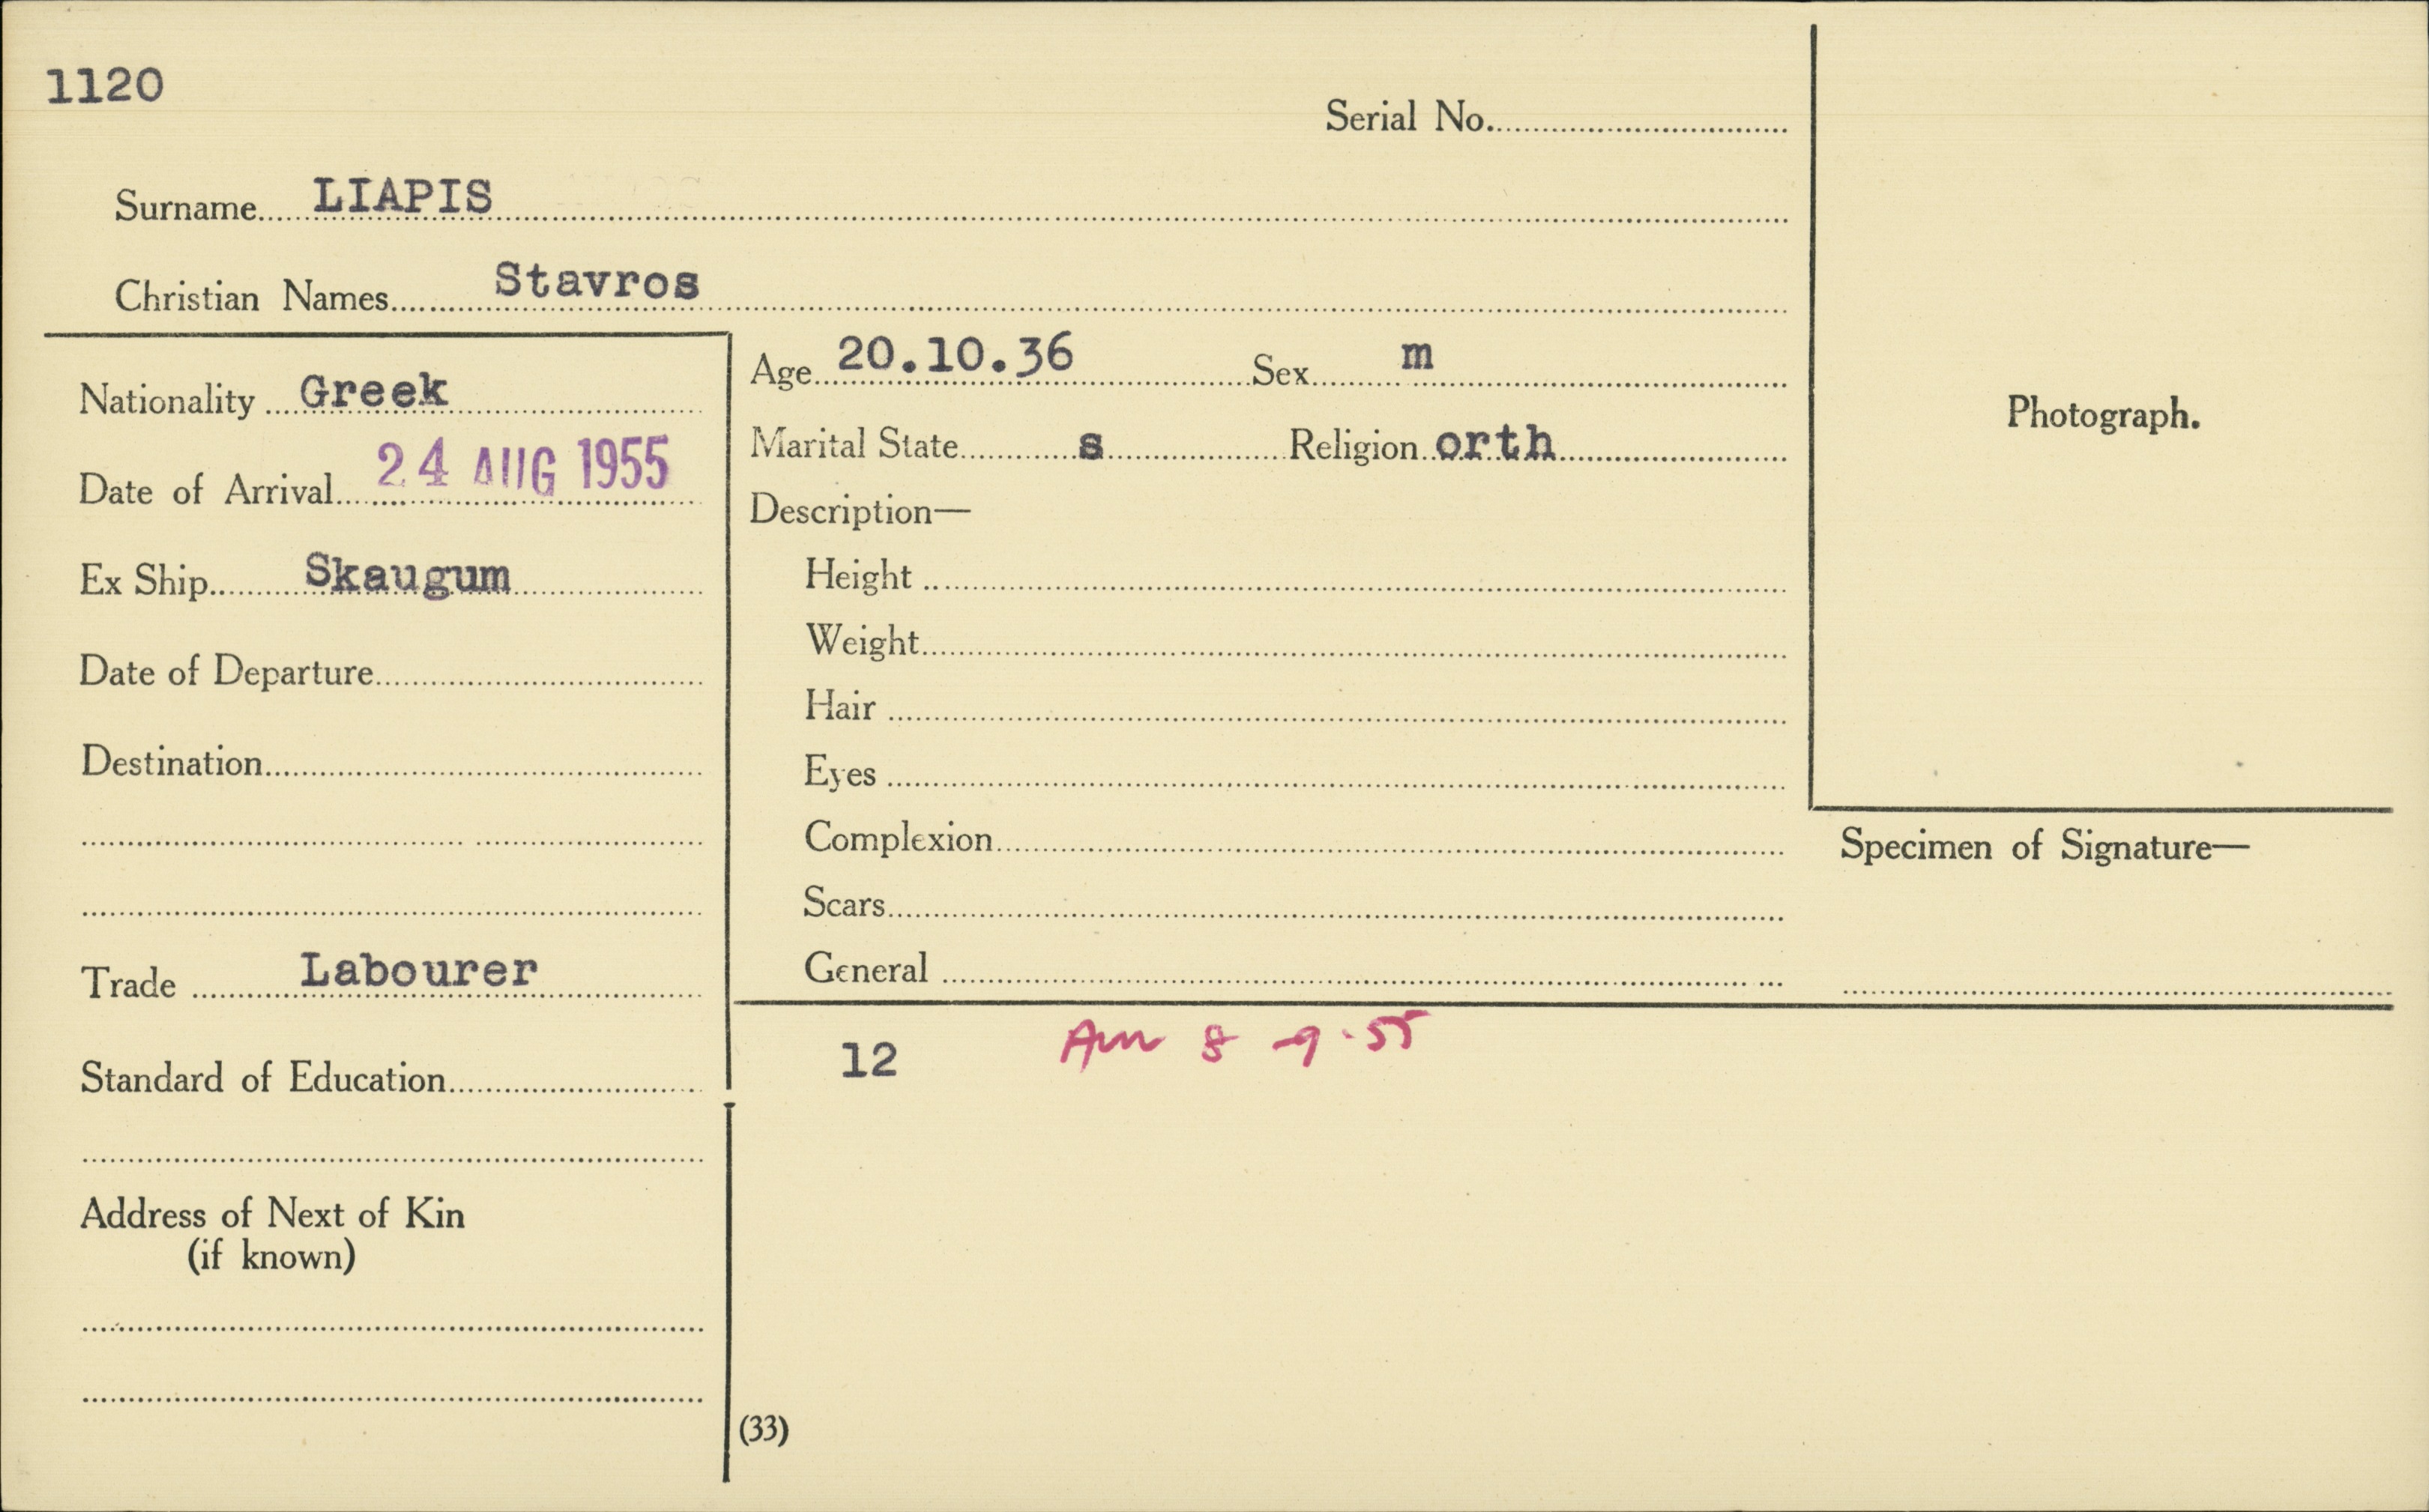 1120
Serial No.
Surname LIAPIS
Christian Names Stavros
Nationality Greek
Date of Arrival 24 AUG 1955
Ex Ship Skaugum
Date of Departure
Destination
Trade Labourer
Standard of Education
Address of Next of Kin
(if known)
Age 20.10.36 Sex m
Marital State s Religion orth
Description—
Height
Weight
Hair
Eyes
Complexion
Scars
General
Photograph.
Specimen of Signature—
12 8 -9.55
(33)